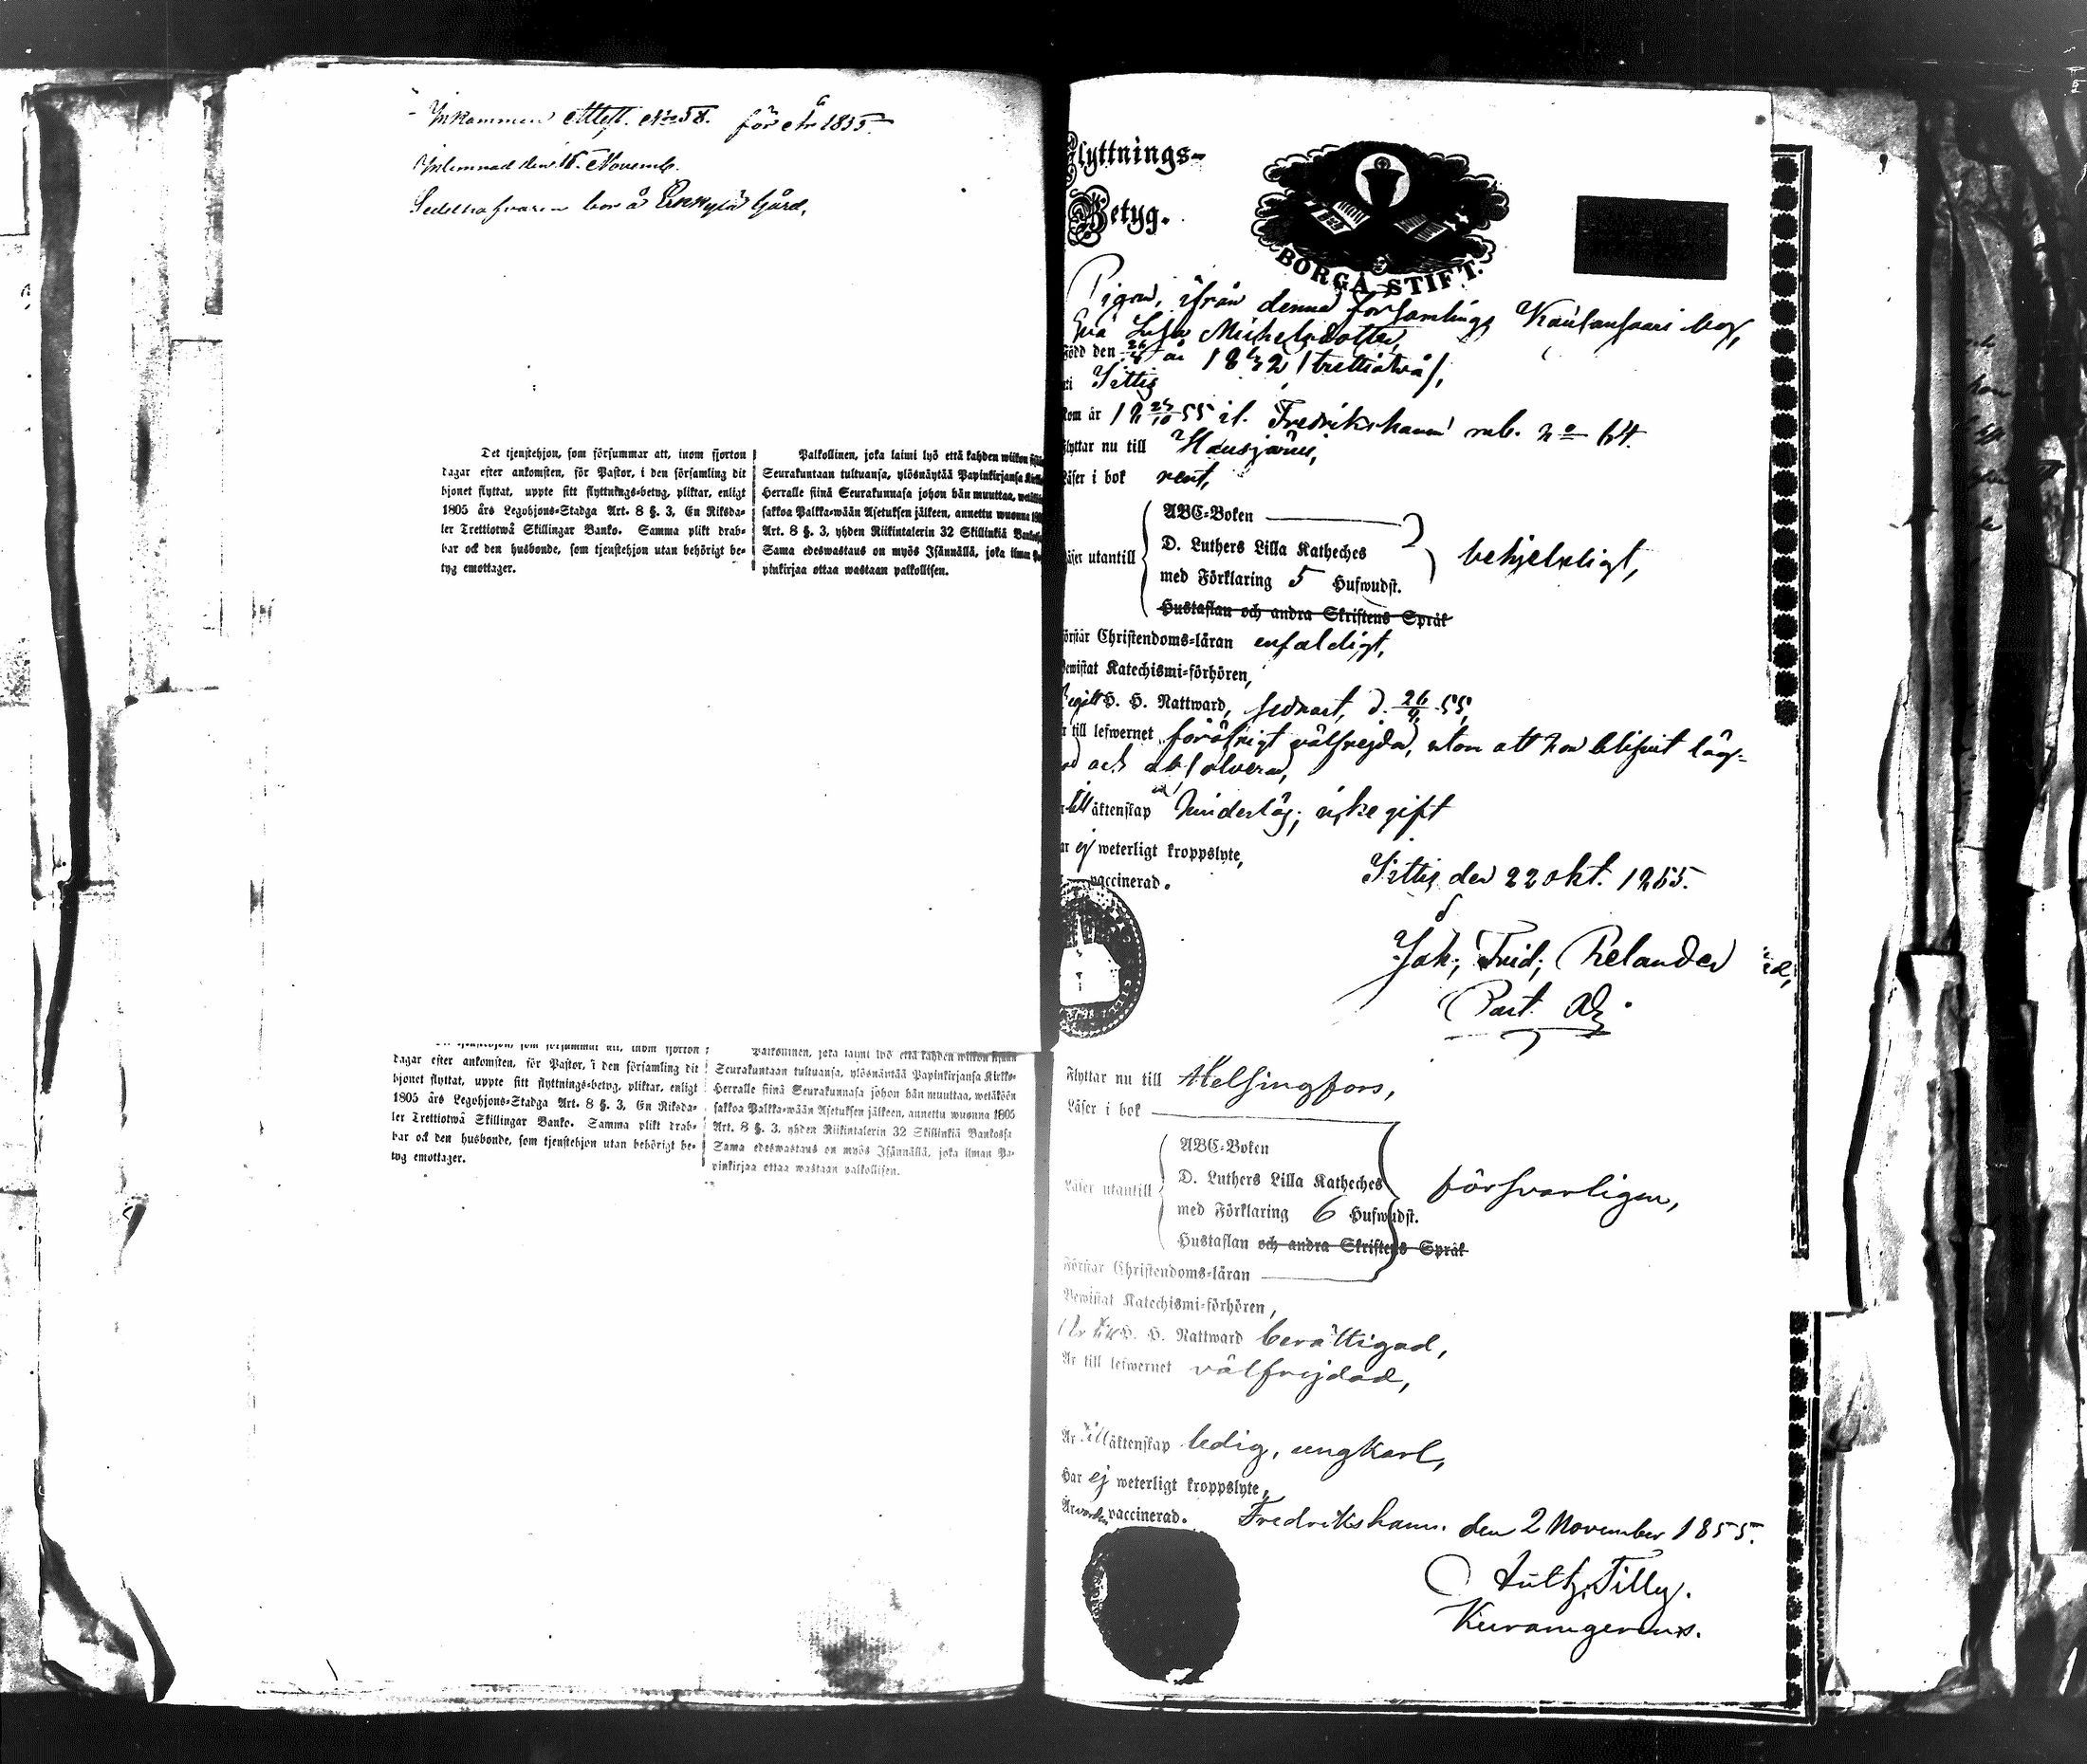 Inkommen Attest. No 58. för År 1855.
Inlemnad den 16. Novemb.
Sedelhafvaren bor å Erkkylä Gård.
Det tjenstehjon, som försummar att, inom fjorton
dagar efter ankomsten, för Pastor, i den församling dit
hjonet flyttat, uppte sitt flyttnings-betyg, pliktar, enligt
1805 års Legohjons-Stadga Art. 8 §. 3, En Riksda-
ler Trettiotwå Skillingar Banko. Samma plikt drab-
bar ock den husbonde, som tjenstehjon utan behörigt be-
tyg emottager.
Palkollinen, joka laimi lyö että kahden wiikon
Seurakuntaan tultuansa, ylösnäytää Papinkirjansa
Herralle siinä Seurakunnasa johon hän muuttaa,
sakkoa Palkka-wään Asetuksen jälkeen, annettu wuonna
Art. 8 §. 3, yhden Riikintalerin 32 Skillinkiä
Sama edeswastaus on myös Isännällä, joka ilman
pinkirjaa ottaa wastaan palkollisen.
dagar efter ankomsten, för Pastor, i den församling dit
hjonet flyttat, uppte sitt flyttnings-betyg, pliktar, enligt
1805 års Legohjons-Stadga Art. 8 §. 3, En Riksda-
ler Trettiotwå Skillingar Banko. Samma plikt drab-
bar ock den husbonde, som tjenstehjon utan behörigt be-
tyg emottager.
Palkollinen, joka laimi lyö että kahden wiikon
Seurakuntaan tultuansa, ylösnäytää Papinkirjansa Kirkko-
Herralle siinä Seurakunnasa johon hän muuttaa, wetäköön
sakkoa Palkka-wään Asetuksen jälkeen, annettu wuonna 1805
Art. 8 §. 3, yhden Riikintalerin 32 Skillinkiä Bankossa
Sama edeswastaus on myös Isännällä, joka ilman Pa-
pinkirjaa ottaa wastaan palkollisen.
Flyttnings-
Betyg.
BORGÅ STIFT.
Pigan, ifrån denna församlings Kausansaari by,
Eva Lisa Michelsdotter,
Född den 26 år 1832 /trettiotvå/,
i Sittis
Kom år 18 23/10 55 il. Fredrikshamn mb. no 64.
Flyttar nu till Hausjärvi,
Läser i bok rent,
ABC-Boken
D. Luthers Lilla Katheches
med Förklaring 5 Hufwudst.
Läser utantill behjelpligt,
Hustaflan och andra Skriftens Språk
Förstår Christendoms-läran enfaldigt,
Bewistat Katechismi-förhören,
Begått H. H. Nattward, sednast, d. 26/8 55,
Är till lefwernet föröfrigt välfrejdad, utom att hon blifvit läg-
rad och absolverad,
Är till äktenskap hinderlös; icke gift
Har ej weterligt kroppslyte,
vaccinerad.
Sittis den 22 okt. 1855.
Joh; Frid; Relander
Past. Adj.
Flyttar nu till Helsingfors,
Läser i bok
ABC-Boken
D. Luthers Lilla Katheches
Läser utantill försvarligen,
med Förklaring 6 Hufwudst.
Hustaflan och andra Skriftens Språk
Förstår Christendoms-läran
Bewistat Katechismi-förhören,
Är till H. H. Nattward berättigad,
Är till lefwernet välfrejdad,
Är till äktenskap ledig, ungkarl,
Har ej weterligt kroppslyte,
Är worden vaccinerad. Fredrikshamn. den 2 November 1855.
Tilly.